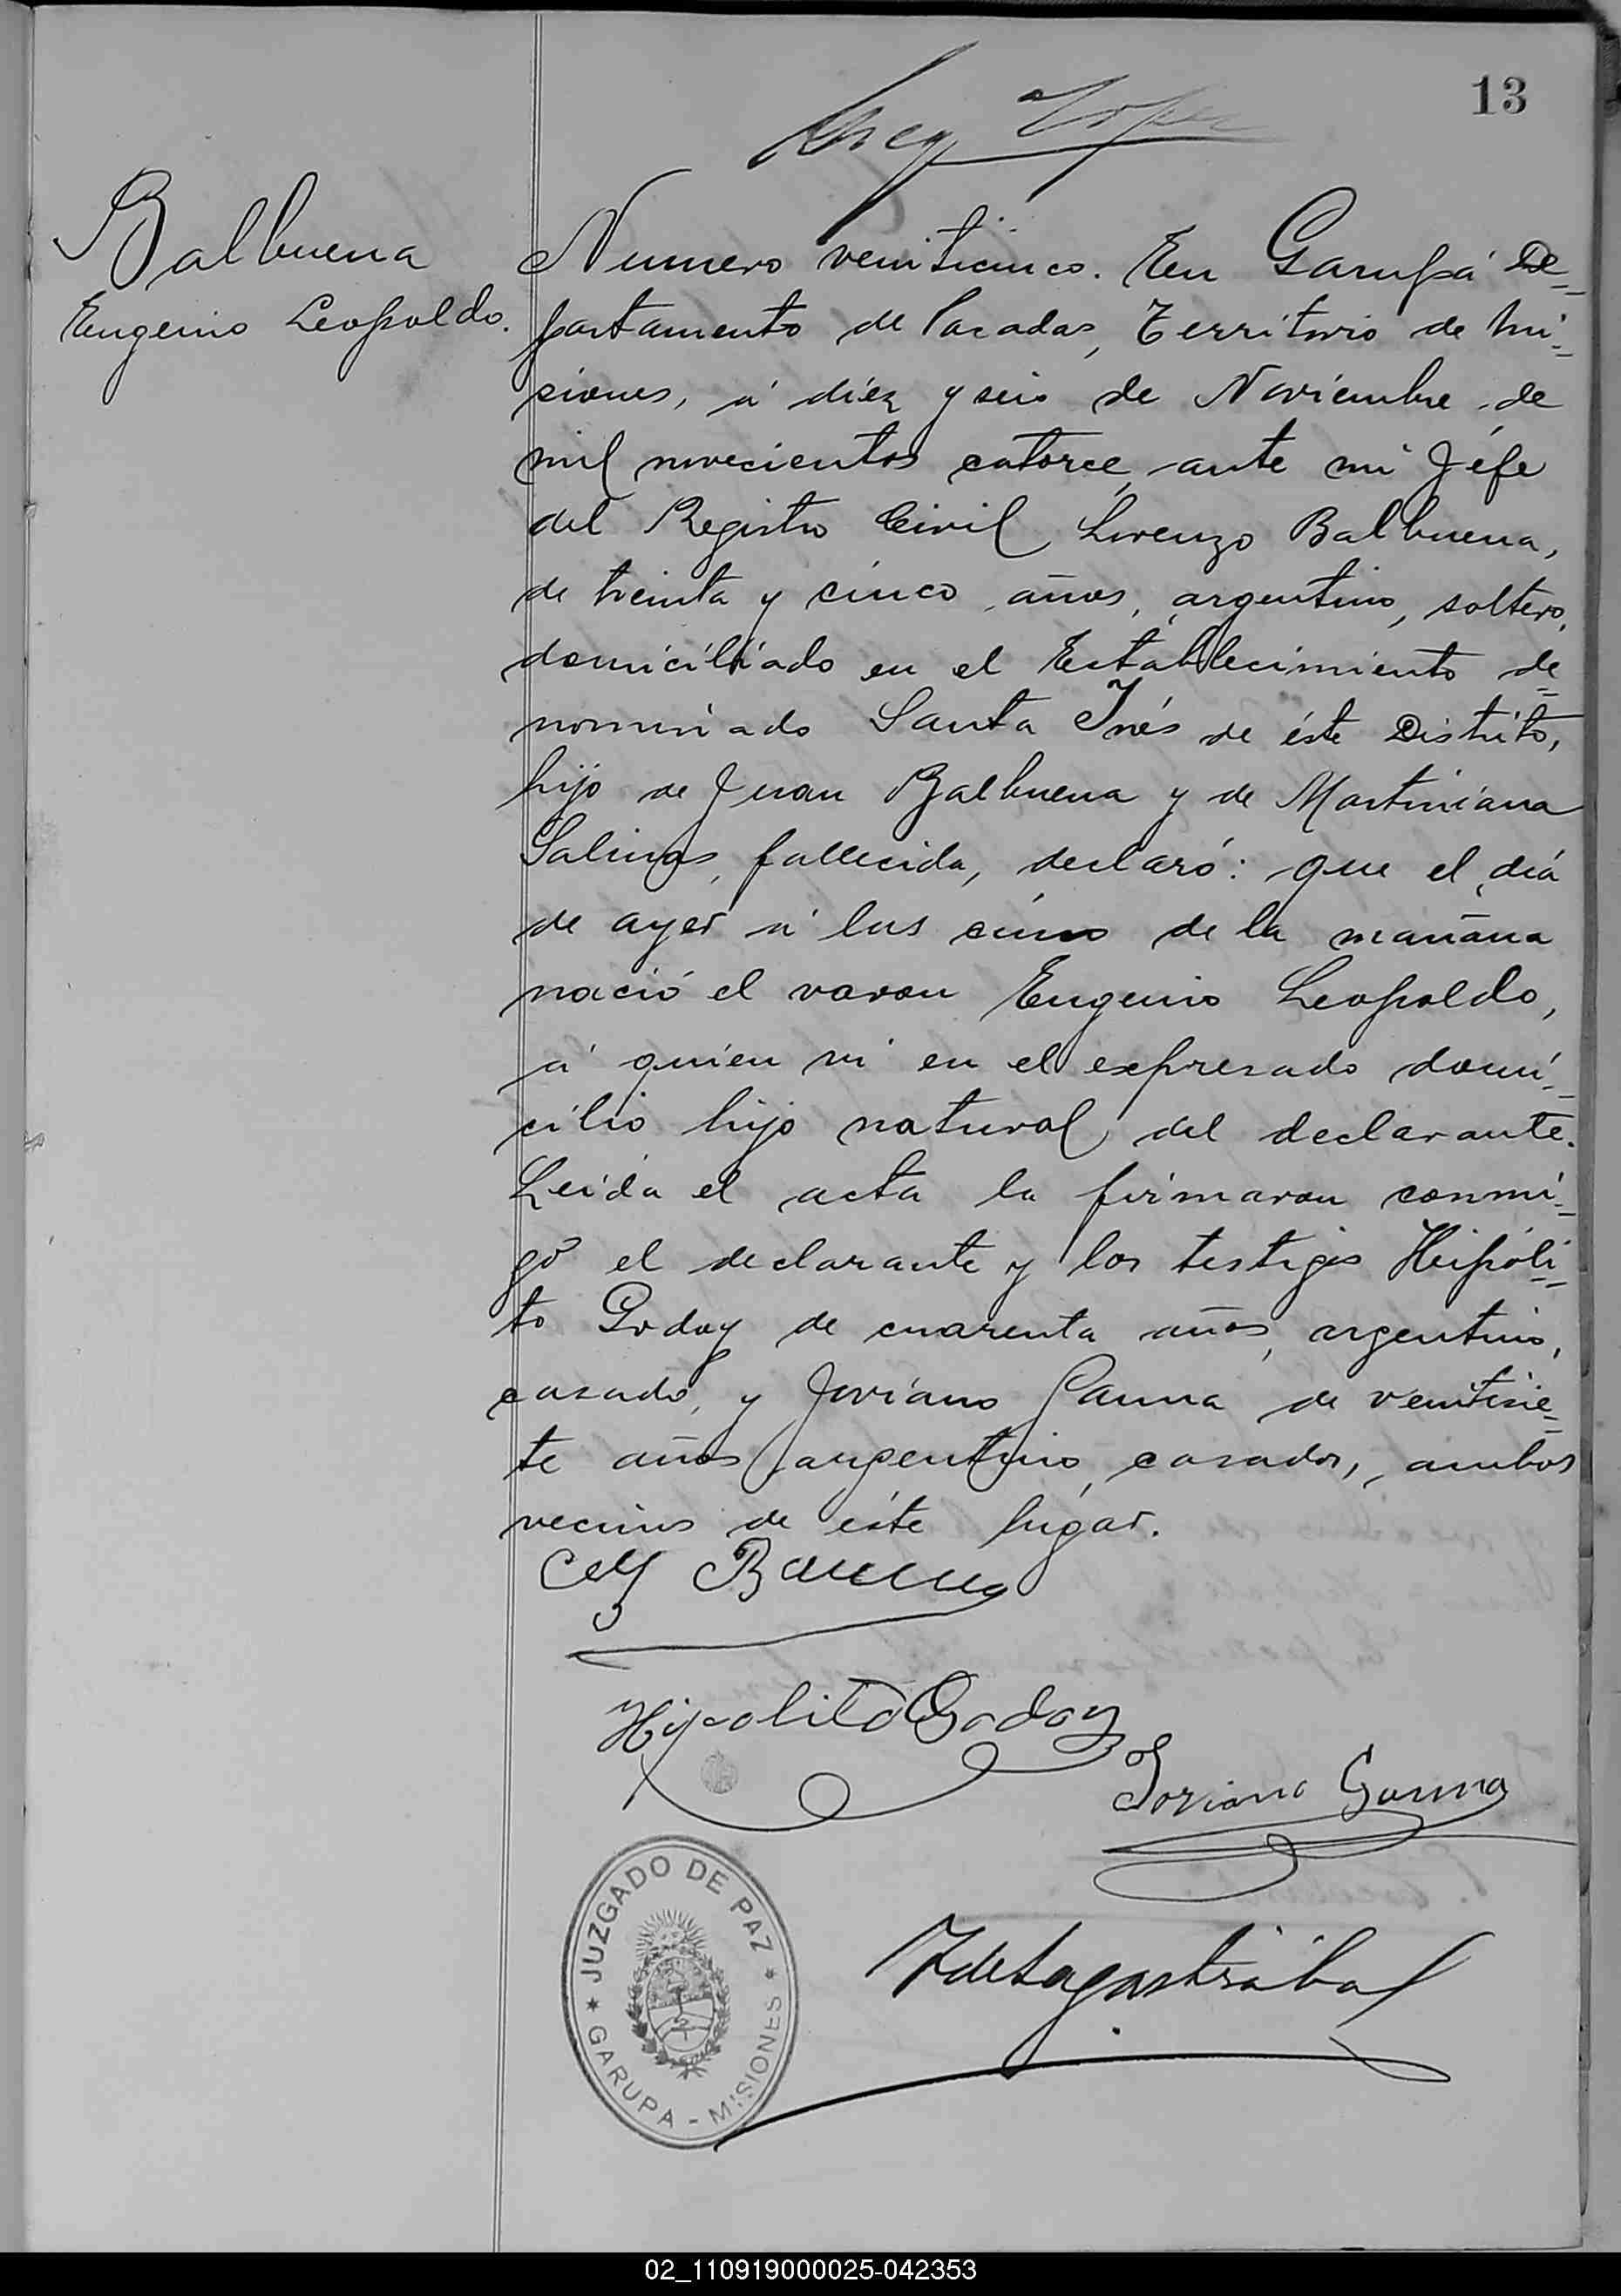 13
Lopez
Balbuena
Eugenio Leopoldo.
Numero veinticinco. En Garupá De-
partamento de Posadas, Territorio de Mi-
siones, á diéz y seis de Noviembre de
mil novecientos catorce, ante mi Jéfe
del Registro Civil Lorenzo Balbuena,
de treinta y cinco años, argentino, soltero,
domiciliado en el Establecimiento de-
nominado Santa Inés de éste Distrito,
hijo de Juan Balbuena y de Martiniana
Salinas, fallecida, declaró: que el día
de ayer á las cinco de la mañana
nació el varon Eugenio Leopoldo,
á quien ví en el expresado domi-
cilio hijo natural del declarante.
Leida el acta la firmaron conmi-
go el declarante y los testigos Heipóli-
to Godoy de cuarenta años, argentino,
casado, y Joviano Gauna de veintisie-
te años argentino, casados, ambos
vecinos de éste lugar.
Hipolito Godoy
Joviano Gauna
JUZGADO DE PAZ
GARUPA - MISIONES
02_110919000025-042353